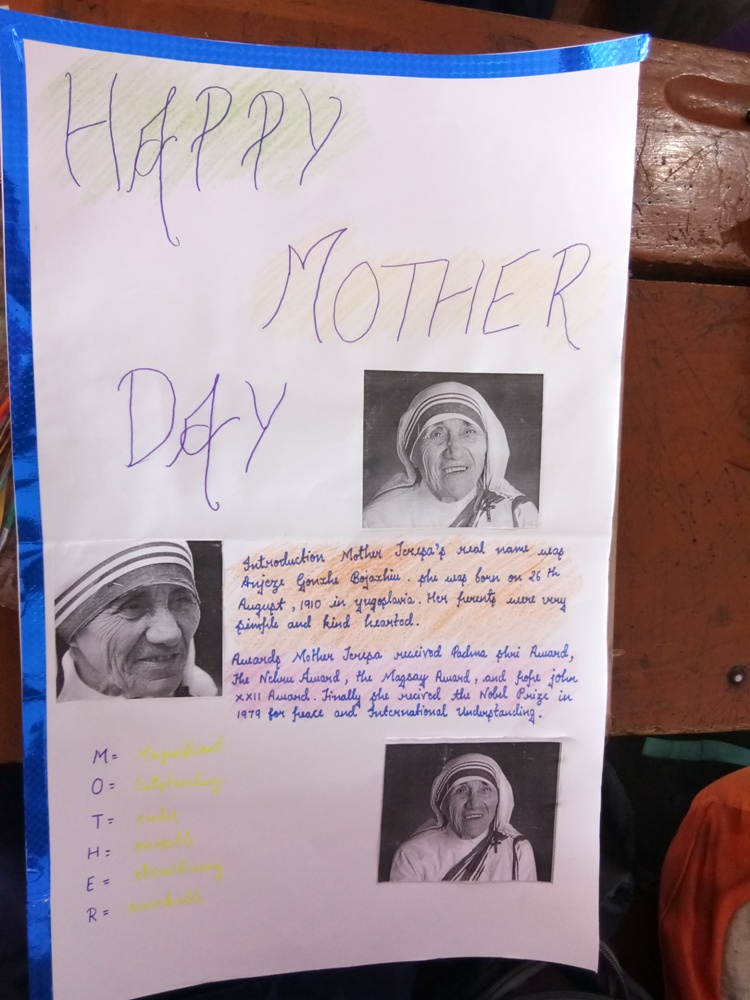 HAPPY
MOTHER
DAY
Introduction Mother Teresa's real name was
Anjeze Gonxhe Bojaxhiu. she was born on 26 th
August, 1910 in yugoslavia. Her perents were very
simple and kind hearted.
Awards Mother Teresa received Padma shri Award,
the Nehru Award, the Magsay Award, and pope john
XXII Award. Finally she recived the Nobel Prize in
1979 for peace and International Understanding.
M= Magnificent
O= Outstanding
T=
H=
E=
R=